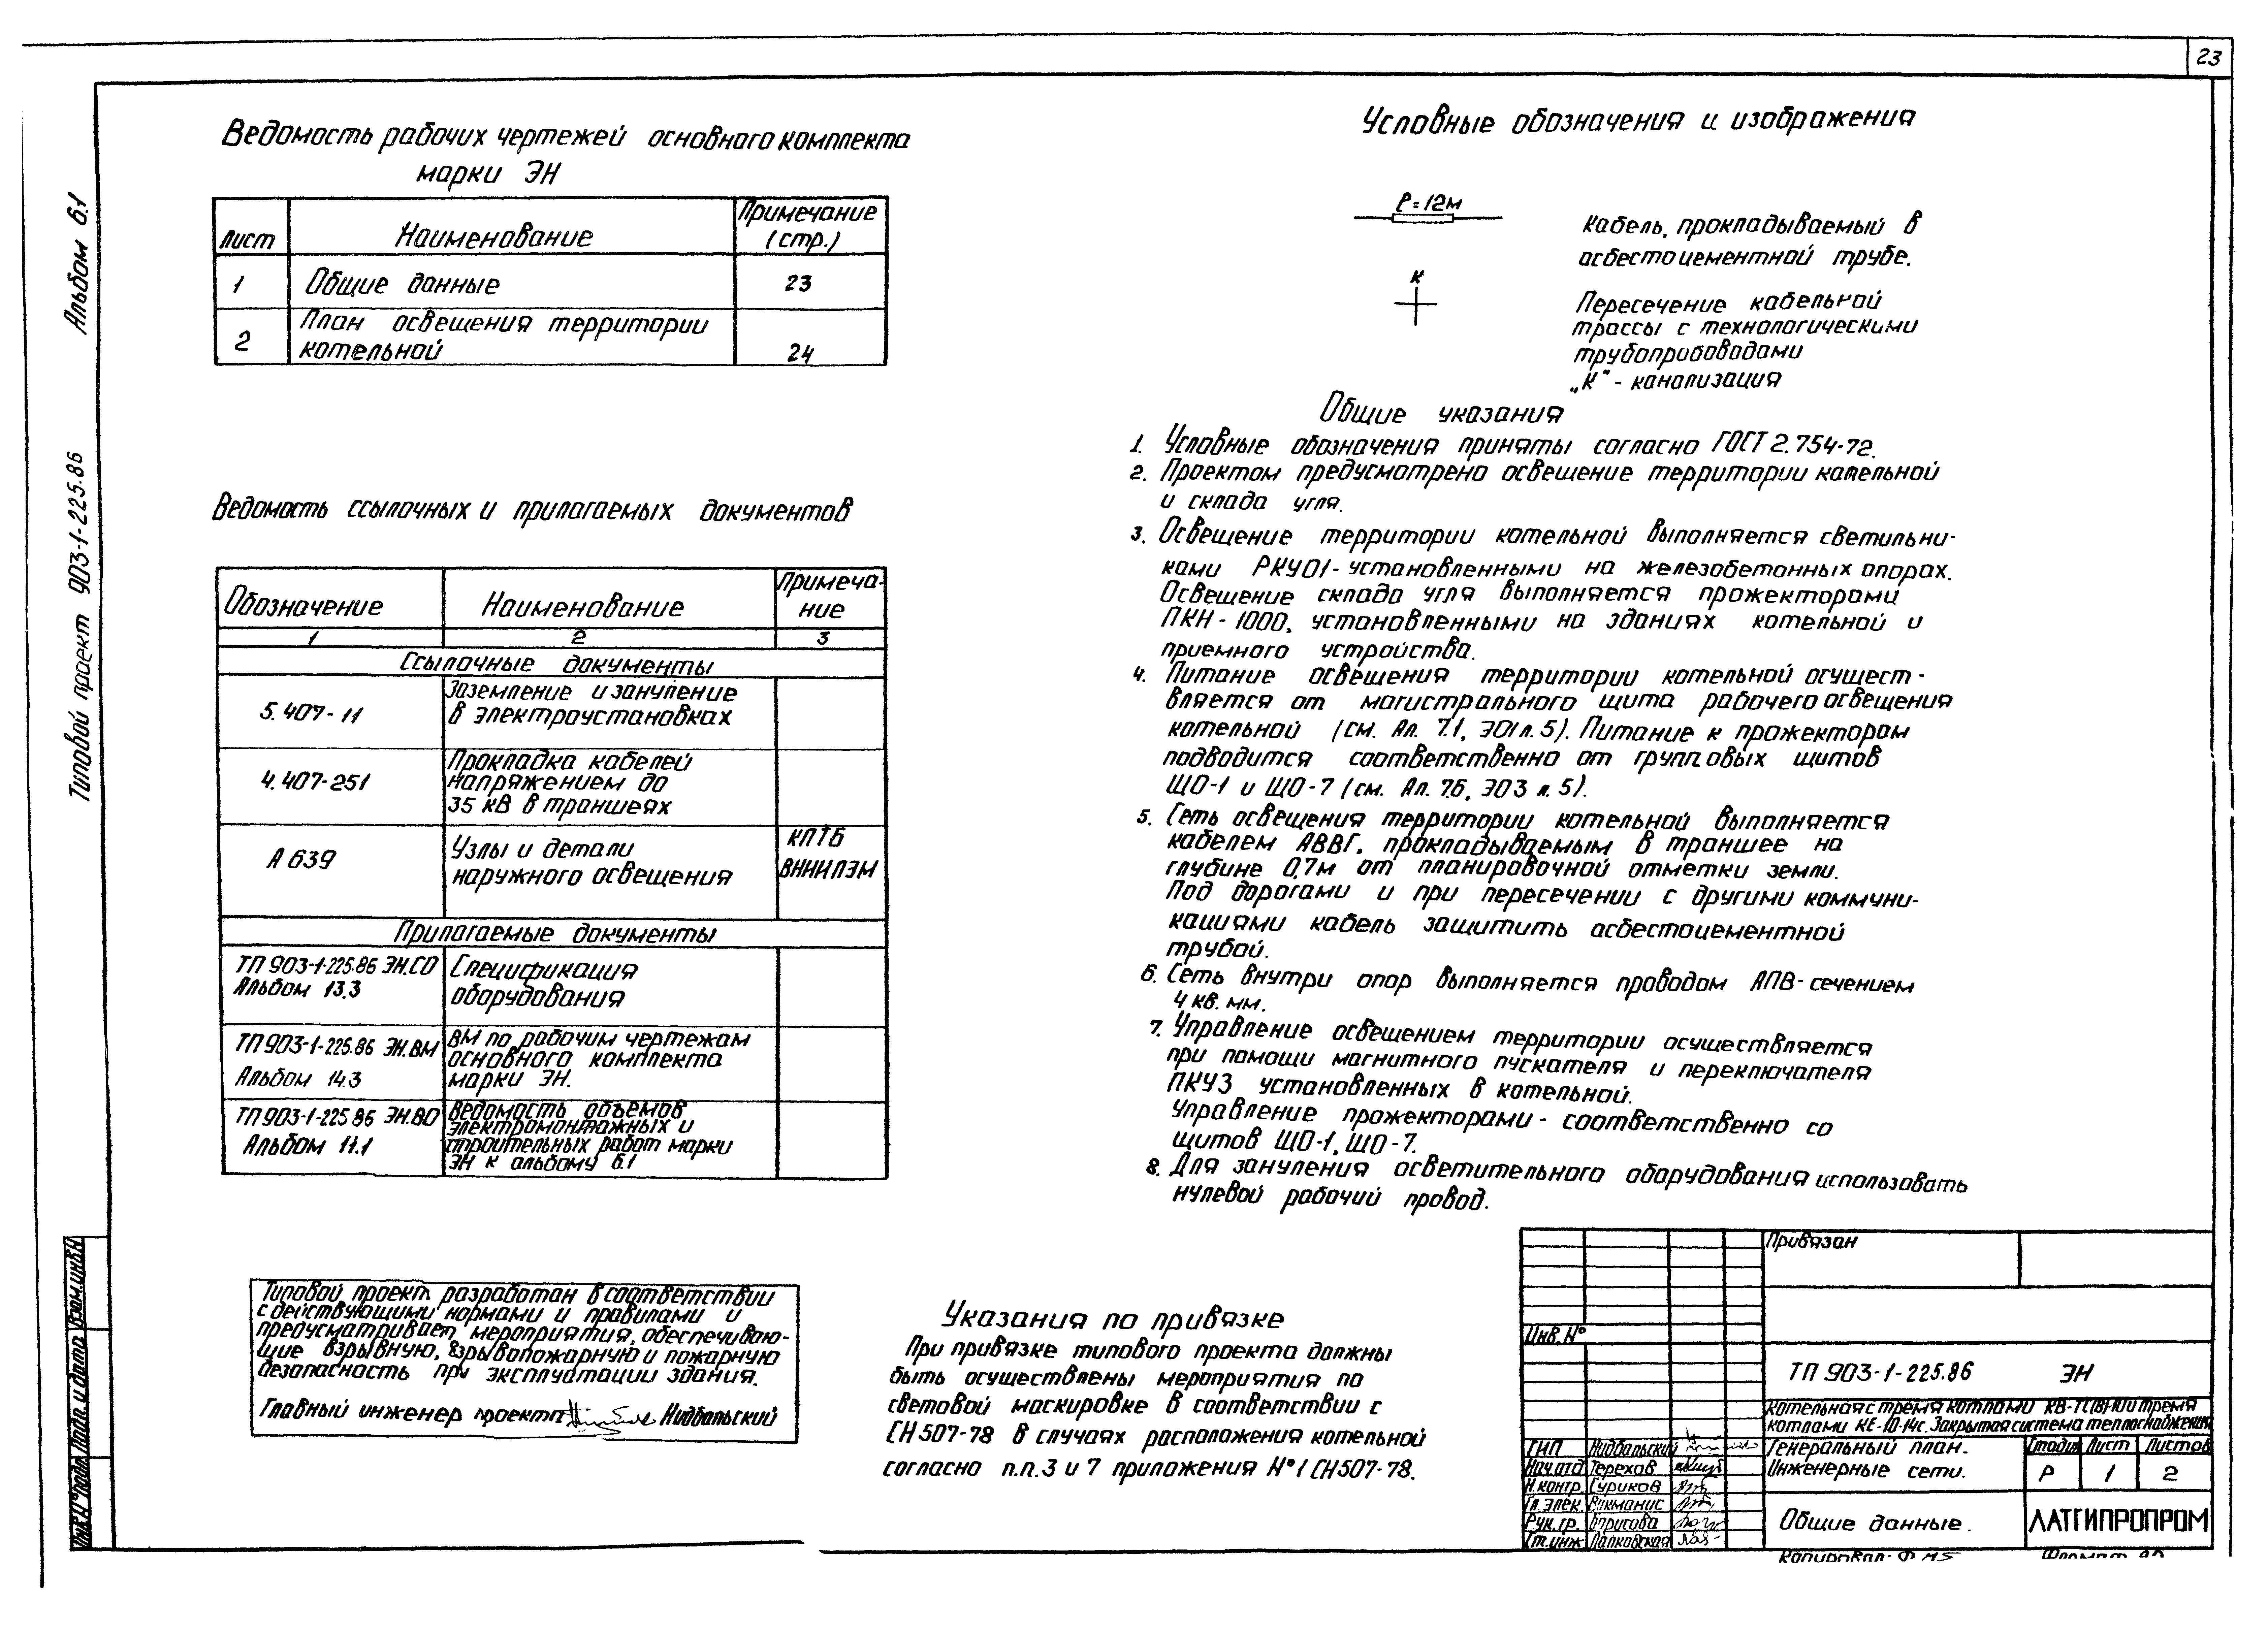 23
Альбом 6.1
Типовой проект 903-1-225.86
Ведомость рабочих чертежей основного комплекта
марки ЭН
Лист Наименование Примечание (стр.)
1 Общие данные 23
2 План освещения территории
котельной 24
Ведомость ссылочных и прилагаемых документов
Обозначение Наименование Примеча-
ние
1 2 3
Ссылочные документы
5.407-11 Заземление и зануление
в электроустановках
4.407-251 Прокладка кабелей
напряжением до
35 кВ в траншеях
А 639 Узлы и детали
наружного освещения
КПТБ
ВНИИПЭМ
Прилагаемые документы
ТП 903-1-225.86 ЭН.СО Спецификация
Альбом 13.3 оборудования
ТП 903-1-225.86 ЭН.ВМ ВМ по рабочим чертежам
основного комплекта
Альбом 14.3 марки ЭН.
ТП 903-1-225.86 ЭН.ВО Ведомость объемов
электромонтажных и
Альбом 11.1 строительных работ марки
ЭН к альбому 6.1
Типовой проект разработан в соответствии
с действующими нормами и правилами и
предусматривает мероприятия, обеспечиваю-
щие взрывную, взрывопожарную и пожарную
безопасность при эксплуатации здания.
Главный инженер проекта Нидбальский
Условные обозначения и изображения
ℓ=12м
Кабель, прокладываемый в
асбестоцементной трубе.
К
Пересечение кабельной
трассы с технологическими
трубопроводами
„К" - канализация
Общие указания
1. Условные обозначения приняты согласно ГОСТ 2.754-72.
2. Проектом предусмотрено освещение территории котельной
и склада угля.
3. Освещение территории котельной выполняется светильни-
ками РКУ01-установленными на железобетонных опорах.
Освещение склада угля выполняется прожекторами
ПКН-1000, установленными на зданиях котельной и
приемного устройства.
4. Питание освещения территории котельной осущест-
вляется от магистрального щита рабочего освещения
котельной (см. Ал. 7.1, ЭО1 л.5). Питание к прожекторам
подводится соответственно от групповых щитов
ЩО-1 и ЩО-7 (см. Ал. 7.6, ЭО3 л.5).
5. Сеть освещения территории котельной выполняется
кабелем АВВГ, прокладываемым в траншее на
глубине 0,7м от планировочной отметки земли.
Под дорогами и при пересечении с другими коммуни-
кациями кабель защитить асбестоцементной
трубой.
6. Сеть внутри опор выполняется проводом АПВ-сечением
4 кв. мм.
7. Управление освещением территории осуществляется
при помощи магнитного пускателя и переключателя
ПКУ3 установленных в котельной.
Управление прожекторами - соответственно со
щитов ЩО-1, ЩО-7.
8. Для зануления осветительного оборудования использовать
нулевой рабочий провод.
Указания по привязке
При привязке типового проекта должны
быть осуществлены мероприятия по
световой маскировке в соответствии с
СН 507-78 в случаях расположения котельной
согласно п.п.3 и 7 приложения №1 СН507-78.
Привязан
Инв.№
ТП 903-1-225.86 ЭН
Котельная с тремя котлами КВ-ТС(В)-10 и тремя
котлами КЕ-10-14с. Закрытая система теплоснабжения
ГИП Нидбальский
Нач.отд Терехов
Н.контр. Суриков
Гл.элек. Викманис
Рук.гр. Борисова
Ст.инж Палковская
Генеральный план.
Инженерные сети.
Стадия Лист Листов
Р 1 2
Общие данные.
ЛАТГИПРОПРОМ
Копировал:
Формат А2
Инв.№ подл. Подп. и дата Взам.инв.№